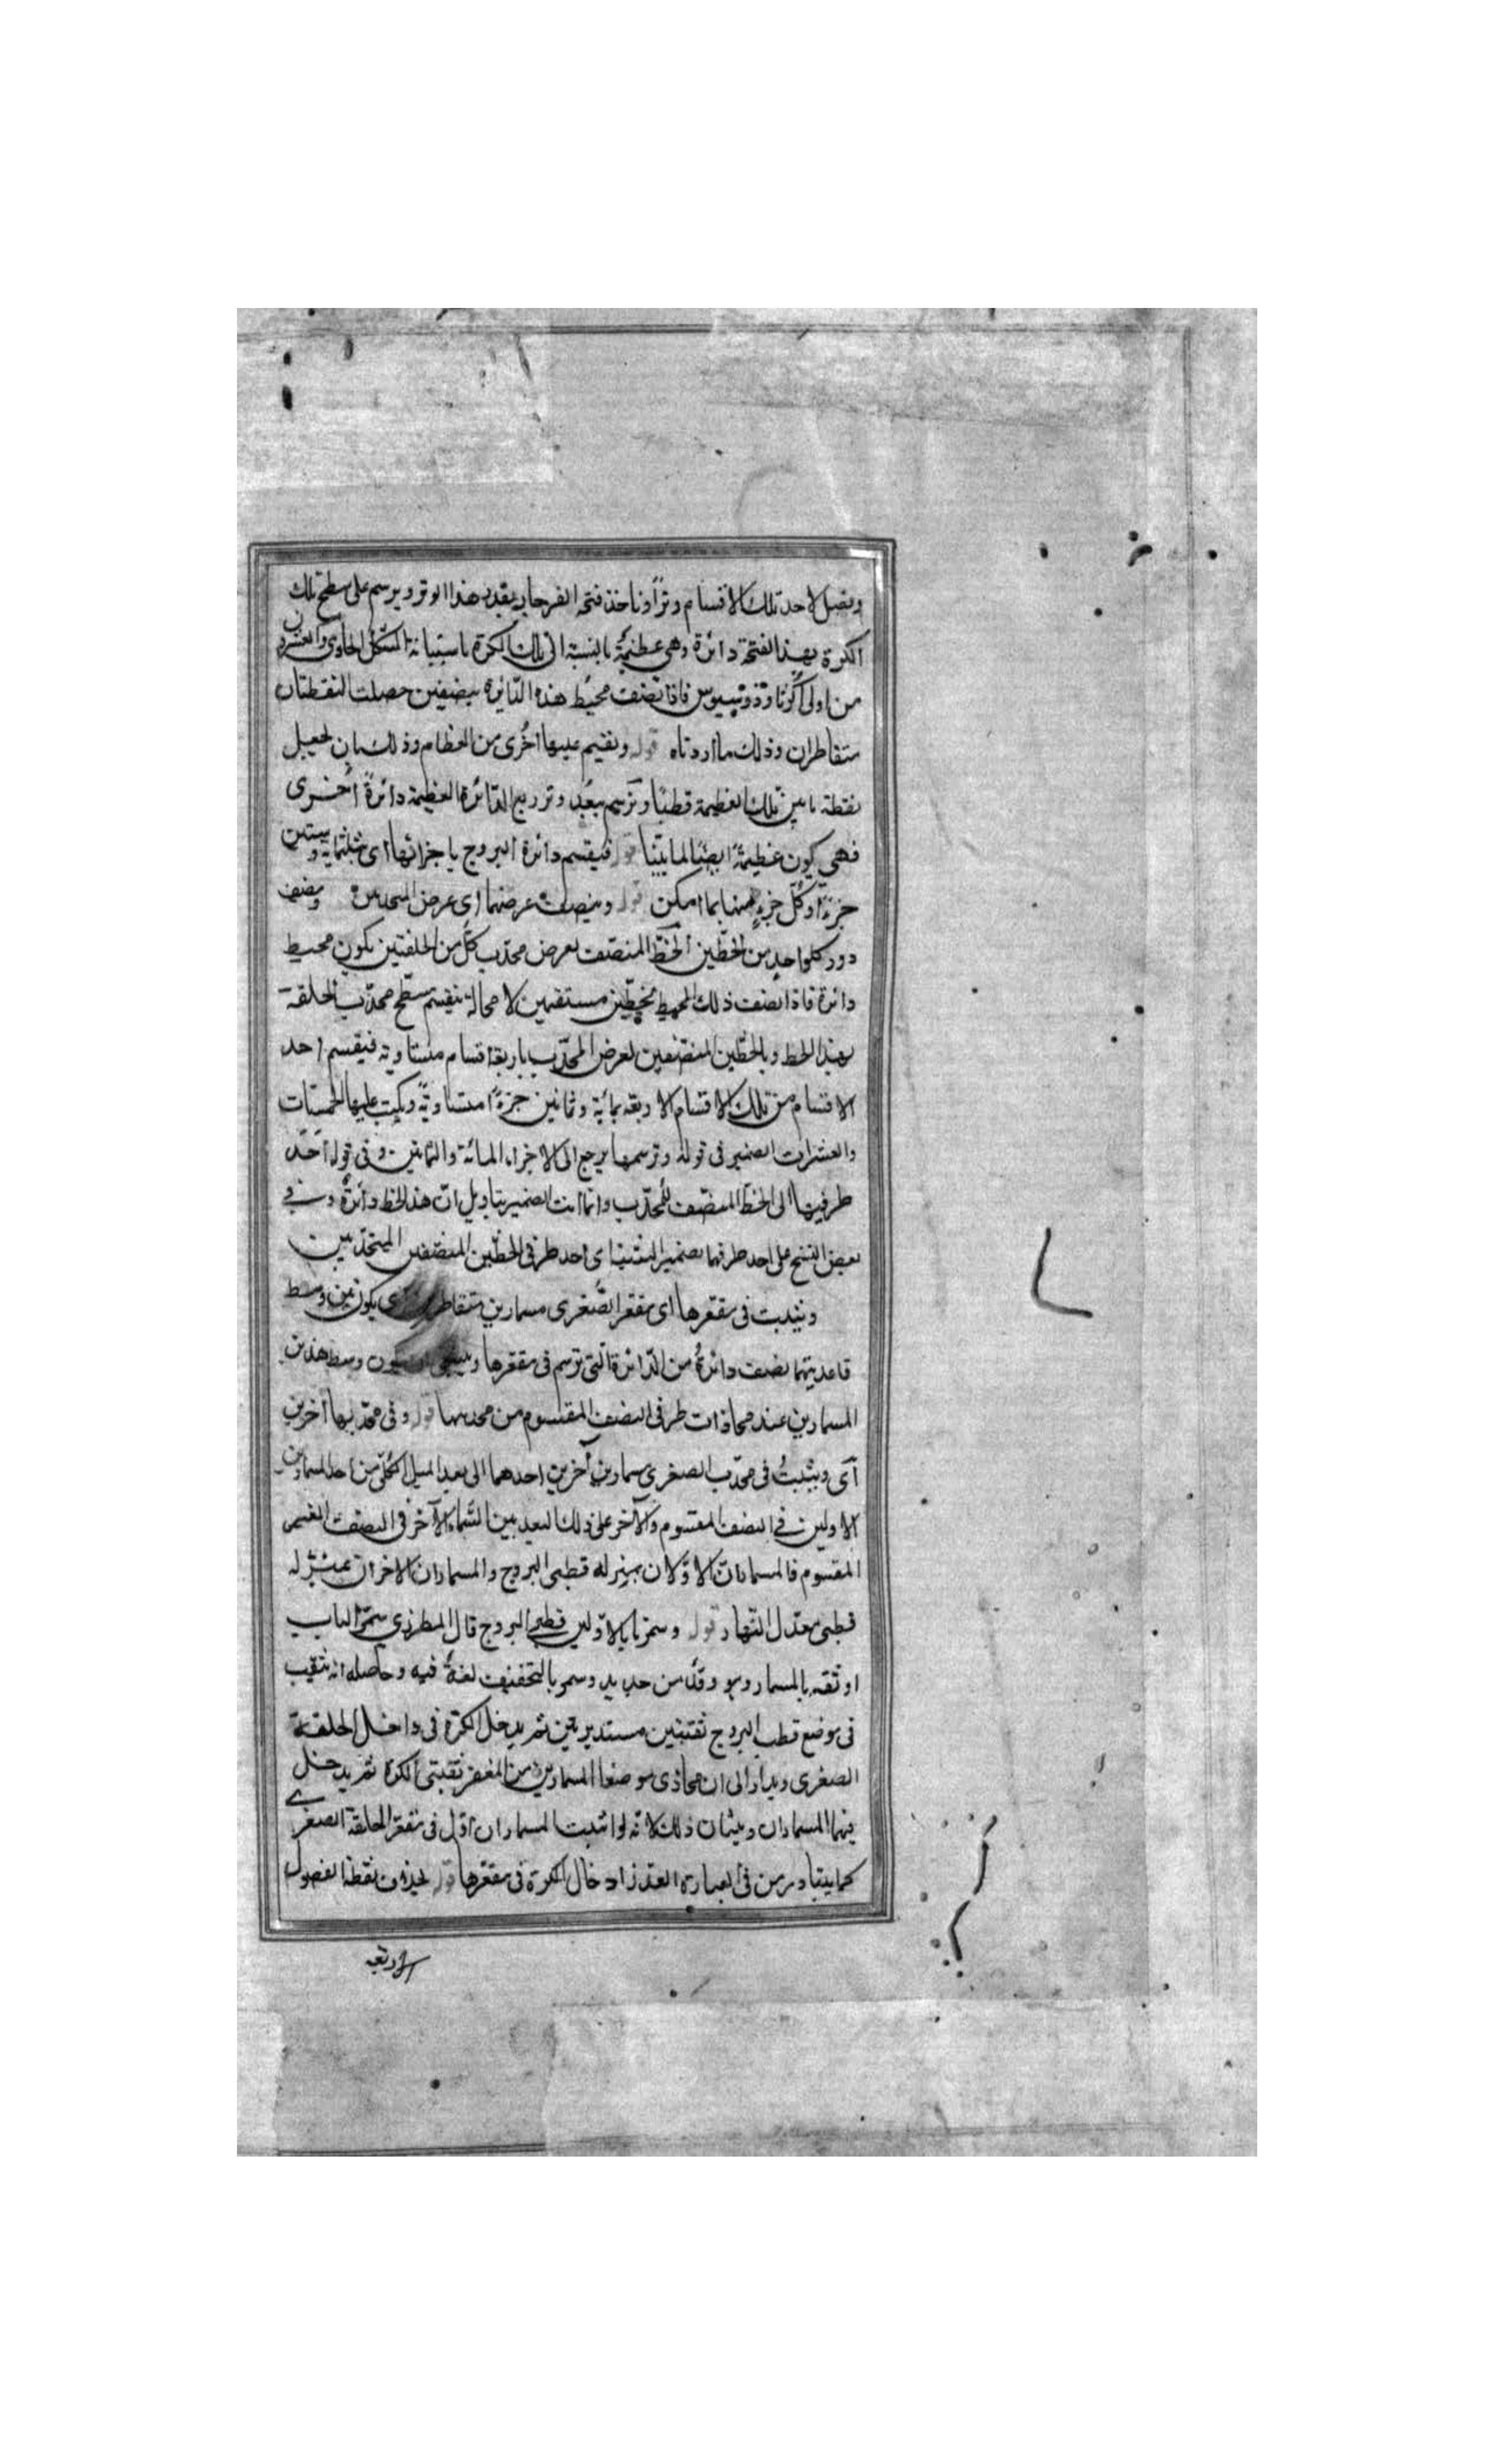 ونصل لاحد تلك الاقسام وترًا وناخذ فتحة الفرجار بقدر هذا الوتر ويرسم على سطح تلك
الكرة بهذا الفتحة دائرة وهى عظيمة بالنسبة الى تلك الكرة باستبانة الشكل الحاوى والعشرون
من اولى اكرثاوذوسيوس فاذا نصف محيط هذه الدّايرة بنصفين حصلت النقطتان
متقاطران وذلك ما اردناه قوله ونقيم عليها أخرى من العظام وذلك بان نجعل
نقطة ما من تلك العظيمة قطبًا ونرسم ببعد وتر ربع الدّائرة العظيمة دائرةً أخرى
فهى يكون عظيمةً ايضًا لما بيّنا قوله فيقسم دائرة البروج باجزائها اى بثلثمایة وستين
جزءً او كلّ جزءٍ منها بما امكن قوله وينصف عرضهما اى عرض المحدبين ونصف
دور كلواحد من الخطّين الخطّ المنصّف لعرض محدّب كل من الحلقتين يكون محيط
دائرة فاذا نصف ذلك المحيط بخطين مستقيمين لا محالة ينقسم سطح محدّب الحلقة
بهذا الخط وبالخطّين المنصّفين لعرض المحدّب باربعة اقسام متساوية فيقسم احد
الاقسام من تلك الاقسام الاربعة بمائة وثمانين جزءًا متساويةً ويكتب عليها الخمسات
والعشرات الضمير فى قوله وترسمها يرجع الى الاجزاء المائة والثمانين وفى قوله احد
طرفيها الى الخطّ المنصّف للمحدّب وانما انث الضمير بتاويل انّ هذا الخط دائرة وفى
بعض النسخ على احد طرفهما بضمير التثنية اى احد طرفى الخطّين المنصّفين المحدّبين
ونثبت فى مقعرها اى مقعر الصّغرى مسمارين متقاطرين اى يكون بين وسط
قاعديتهما نصف دائرة من الدّائرة الّتى ترسم فى مقعرها وينبغى ان يكون وسط هذين
المسمارين عند محاذات طرفى النصف المقسوم من محدبها قوله وفى محدّبها آخرين
اى ويثبتُ فى محدّب الصغرى مسمارين آخرين احدهما الى بعد الميل الكلّى من احد المسمارين
الاولين فى النصف المقسوم والآخر على ذلك البعد من المسمار الآخر فى النصف الغير
المقسوم فالمسماران الاوّلان بمنزله قطبى البروج والمسماران الاخران بمنزله
قطبى معدل النّهار قوله وسمرنا بالاوّلين قطبى البروج قال المطرزى سمّر الباب
اوثقه بالمسمار وهو وتد من حديد وسمر بالتخفيف لغةٌ فيه وحاصله انه يثقب
فى موضع قطب البروج ثقبتين مستديرتين ثم يدخل الكرة فى داخل الحلقة
الصغرى ويدار الى ان يحاذى موضعا المسمارين من المقعر ثقبتى الكرة ثم يدخل
فيها المسماران ويثبتان ذلك لانّه لو اثبت المسماران اوّل فى مقعر الحلقة الصغرى
كما يتبادر من فى العبارة لتعذر ادخال الكرة فى مقعرها قوله ليحذر من نقطة الفصول
الاربعة